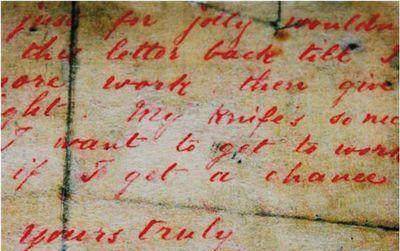 just for jolly wouldn
this letter back till I
more work then give
ght. My knife's so nic
I want to get to work
if I get a chance
Yours truly